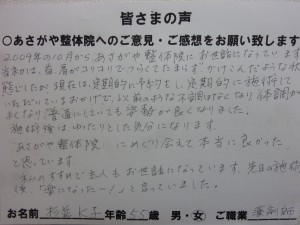 皆さまの声
○あさがや整体院へのご意見・ご感想をお願い致します
2009年の10月からあさがや整体院にお世話になっています
当初は、首、肩がコリコリでつらくてたまらず"かけこんだような状
態でしたが現在は定期的に予約をし、定期的に施術して
いただいているおかげで、以前のような不調はなくなり体調が
よくなり普通にしていても姿勢が良くなりました。
施術後はゆったりとした気分になります。
"あさがや整体院"にめぐり会えて本当に良かった
と思っています
私のすすめで主人もお世話になっています。先日の施術
後、「楽になったー!」と言っていました。
お名前 K子 年齢 55歳 男・女 ご職業 薬剤師